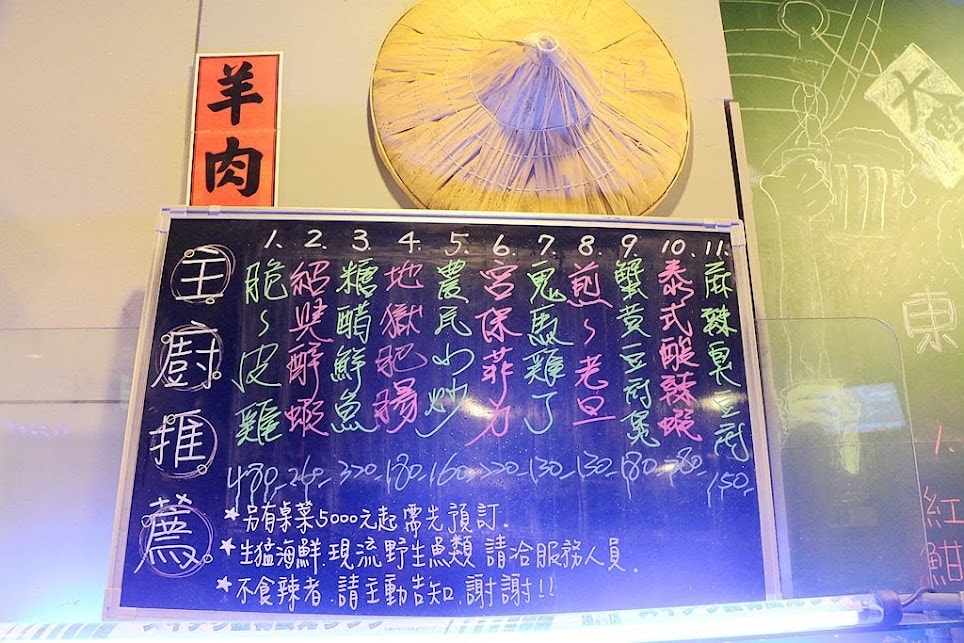 羊肉
主廚推薦
1. 脆~皮雞 480-
2. 紹興醉蝦 260-
3. 糖醋鮮魚 320-
4. 地獄肥腸 180-
5. 農民小炒 160-
6. 宮保菲力 220-
7. 鬼馬雞丁 130-
8. 煎~老旦 130-
9. 蟹黃豆腐煲 180-
10. 泰式酸辣蝦 280-
11. 麻辣臭豆腐 150-
★另有桌菜5000元起需先預訂.
★生猛海鮮.現流野生魚類 請洽服務人員.
★不食辣者.請主動告知.謝謝!!
大
東
紅魽